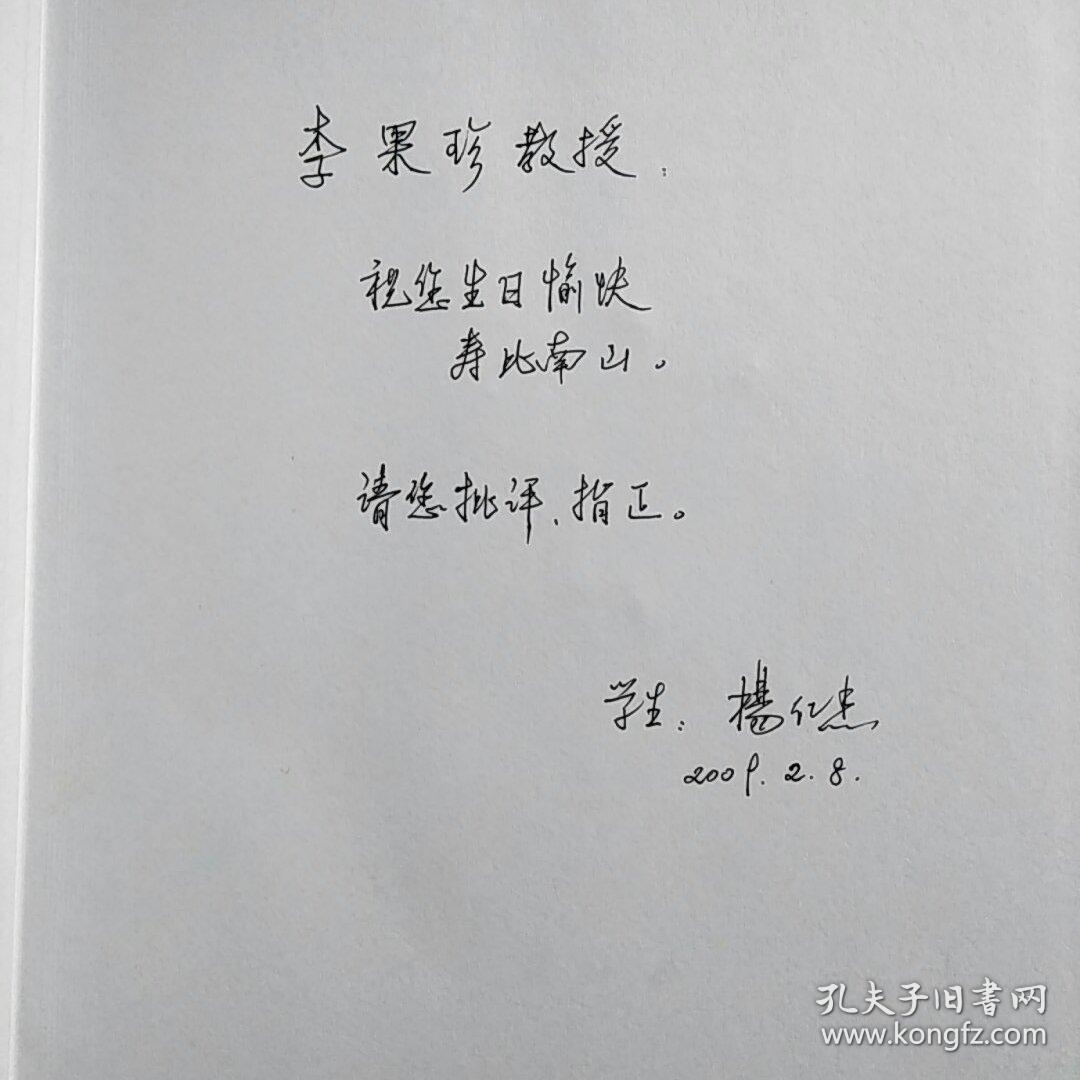 李果珍教授:
祝您生日愉快
寿比南山。
请您批评、指正。
学生: 楊仁杰
2009.2.8.
孔夫子旧書网
www.kongfz.com